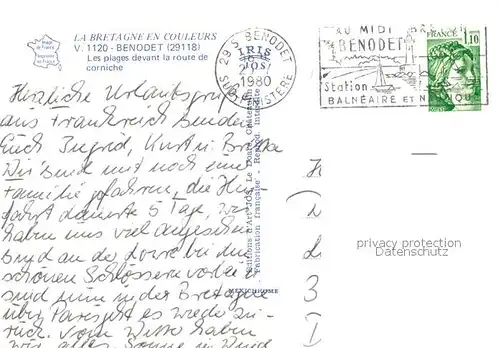 LA BRETAGNE EN COULEURS
V. 1120 - BENODET (29118)
Les plages devant la route de
corniche
Image de France
Imprimé en France
29 S. BENODET
SUD FINISTERE
1980
IRIS
JOS
AU MIDI
BENODET
Station
BALNÉAIRE ET NAUTIQUE
FRANCE
1,10
Herzliche Urlaubsgrüße
aus Frankreich senden
Euch Ingrid, Kurt u.
Wir sind mit noch eine
Familie gefahren, die Hin-
fahrt dauerte 5 Tage, wir
haben uns viel angesehen
sind an der Loire bei den
schönen Schlössern vorbei u
sind nun in der Bretagne
über Paris geht es wieder zu-
rück. Vom Wetter haben
wir alles, Sonne u. Wind
Editions d'Art "JOS" Le Doaré, Châteaulin
Fabrication française. - Reprod. interdite
MEXICHROME
privacy protection
by AnsichtskartenCenter